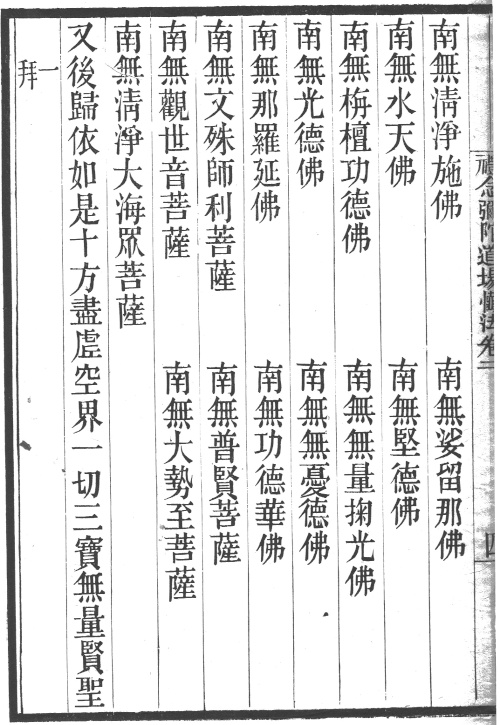 禮念彌陀道場懺法卷二 四
南無清淨施佛 南無娑留那佛
南無水天佛 南無堅德佛
南無栴檀功德佛 南無無量掬光佛
南無光德佛 南無無憂德佛
南無那羅延佛 南無功德華佛
南無文殊師利菩薩 南無普賢菩薩
南無觀世音菩薩 南無大勢至菩薩
南無清淨大海眾菩薩
又後歸依如是十方盡虛空界一切三寶無量賢聖
一拜